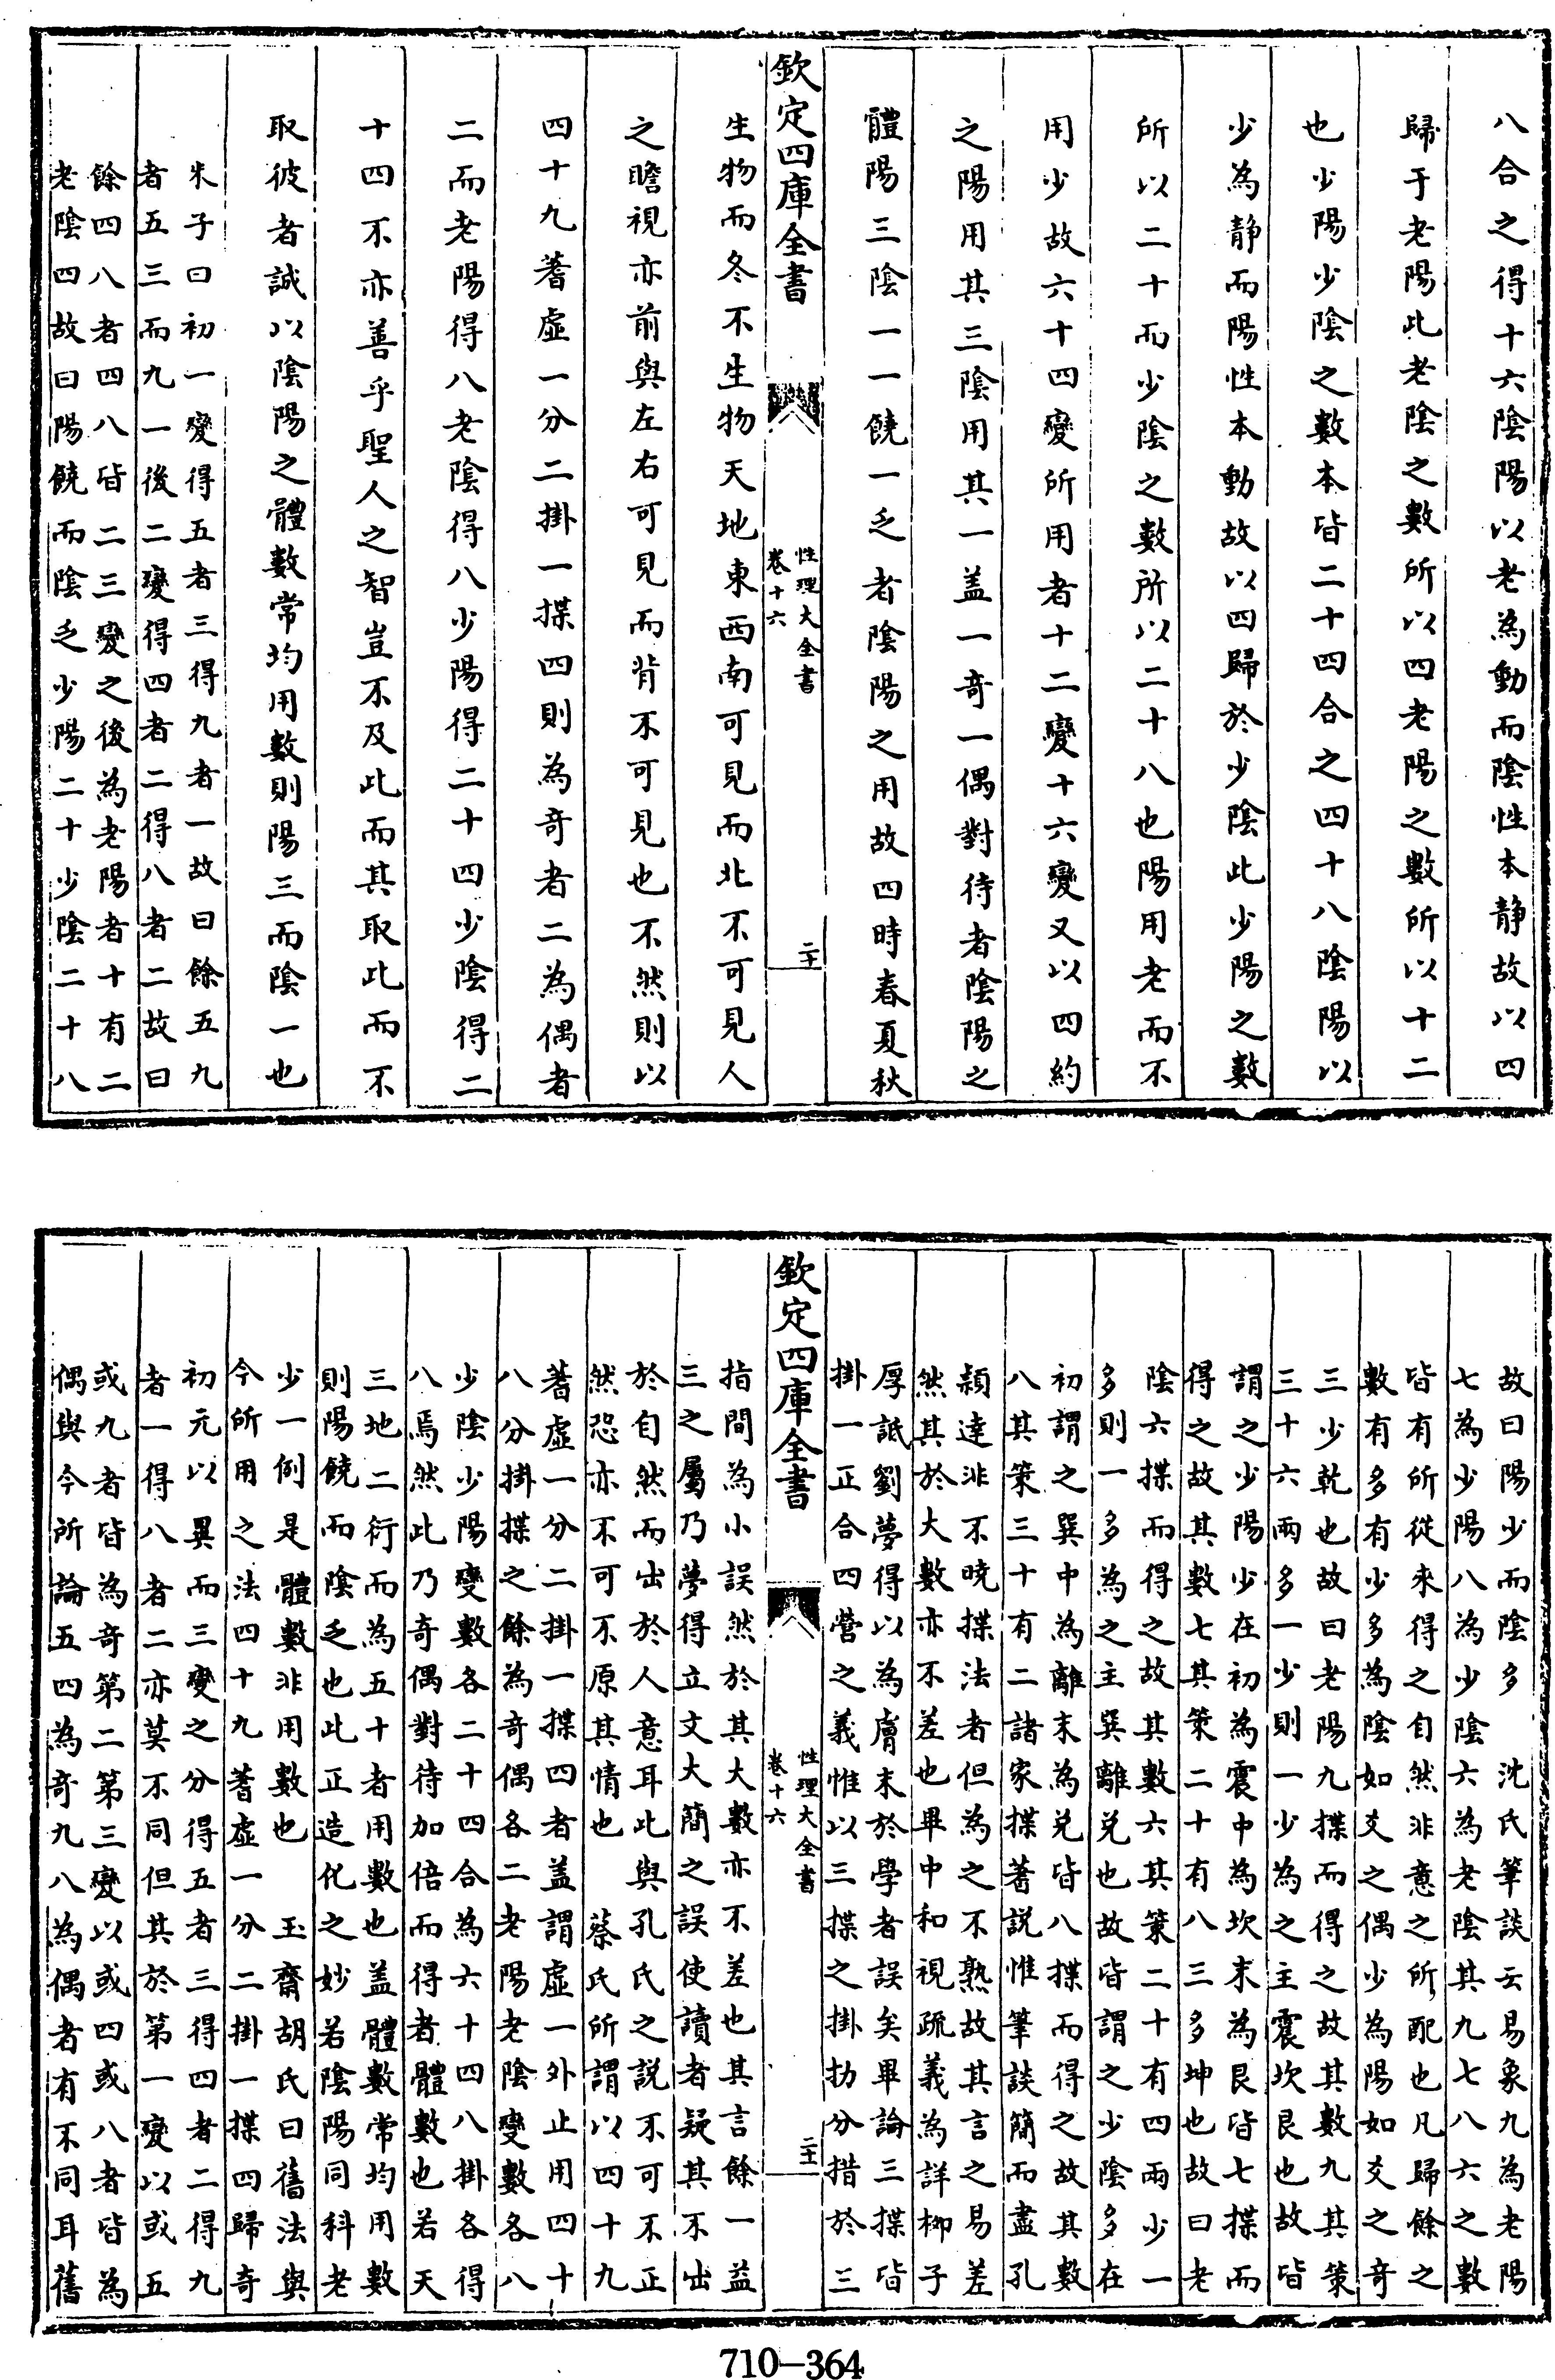 八合之得十六陰陽以老為動而陰性本静故以四
歸于老陽此老陰之數所以四老陽之數所以十二
也少陽少陰之數本皆二十四合之四十八陰陽以
少為静而陽性本動故以四歸於少陰此少陽之數
所以二十而少陰之數所以二十八也陽用老而不
用少故六十四變所用者十二變十六變又以四約
之陽用其三陰用其一盖一奇一偶對待者陰陽之
體陽三陰一一饒一乏者陰陽之用故四時春夏秋
欽定四庫全書
性理大全書
卷十六
二十
生物而冬不生物天地東西南可見而北不可見人
之瞻視亦前與左右可見而背不可見也不然則以
四十九蓍虛一分二掛一揲四則為奇者二為偶者
二而老陽得八老陰得八少陽得二十四少陰得二
十四不亦善乎聖人之智豈不及此而其取此而不
取彼者誠以陰陽之體數常均用數則陽三而陰一也
朱子曰初一變得五者三得九者一故曰餘五九
者五三而九一後二變得四者二得八者二故曰
餘四八者四八皆二三變之後為老陽者十有二
老陰四故曰陽饒而陰乏少陽二十少陰二十八
故曰陽少而陰多 沈氏筆談云易象九為老陽
七為少陽八為少陰六為老陰其九七八六之數
皆有所從來得之自然非意之所配也凡歸餘之
數有多有少多為陰如爻之偶少為陽如爻之奇
三少乾也故曰老陽九揲而得之故其數九其策
三十六兩多一少則一少為之主震坎艮也故皆
謂之少陽少在初為震中為坎末為艮皆七揲而
得之故其數七其策二十有八三多坤也故曰老
陰六揲而得之故其數六其策二十有四兩少一
多則一多為之主巽離兑也故皆謂之少陰多在
初謂之巽中為離末為兑皆八揲而得之故其數
八其策三十有二諸家揲蓍說惟筆談簡而盡孔
頴達非不曉揲法者但為之不熟故其言之易差
然其於大數亦不差也畢中和視疏義為詳柳子
厚詆劉夢得以為膚末於學者誤矣畢論三揲皆
掛一正合四營之義惟以三揲之掛扐分措於三
欽定四庫全書
性理大全書
卷十六
二十一
指間為小誤然於其大數亦不差也其言餘一益
三之屬乃夢得立文大簡之誤使讀者疑其不出
於自然而出於人意耳此與孔氏之說不可不正
然恐亦不可不原其情也 蔡氏所謂以四十九
蓍虛一分二掛一揲四者盖謂虛一外止用四十
八分掛揲之餘為奇偶各二老陽老陰變數各八
少陰少陽變數各二十四合為六十四八掛各得
八焉然此乃奇偶對待加倍而得者體數也若天
三地二衍而為五十者用數也盖體數常均用數
則陽饒而陰乏也此正造化之妙若陰陽同科老
少一例是體數非用數也 玉齋胡氏曰舊法與
今所用之法四十九蓍虛一分二掛一揲四歸奇
初元以異而三變之分得五者三得四者二得九
者一得八者二亦莫不同但其於第一變以或五
或九者皆為奇第二第三變以或四或八者皆為
偶與今所論五四為奇九八為偶者有不同耳舊
710-364